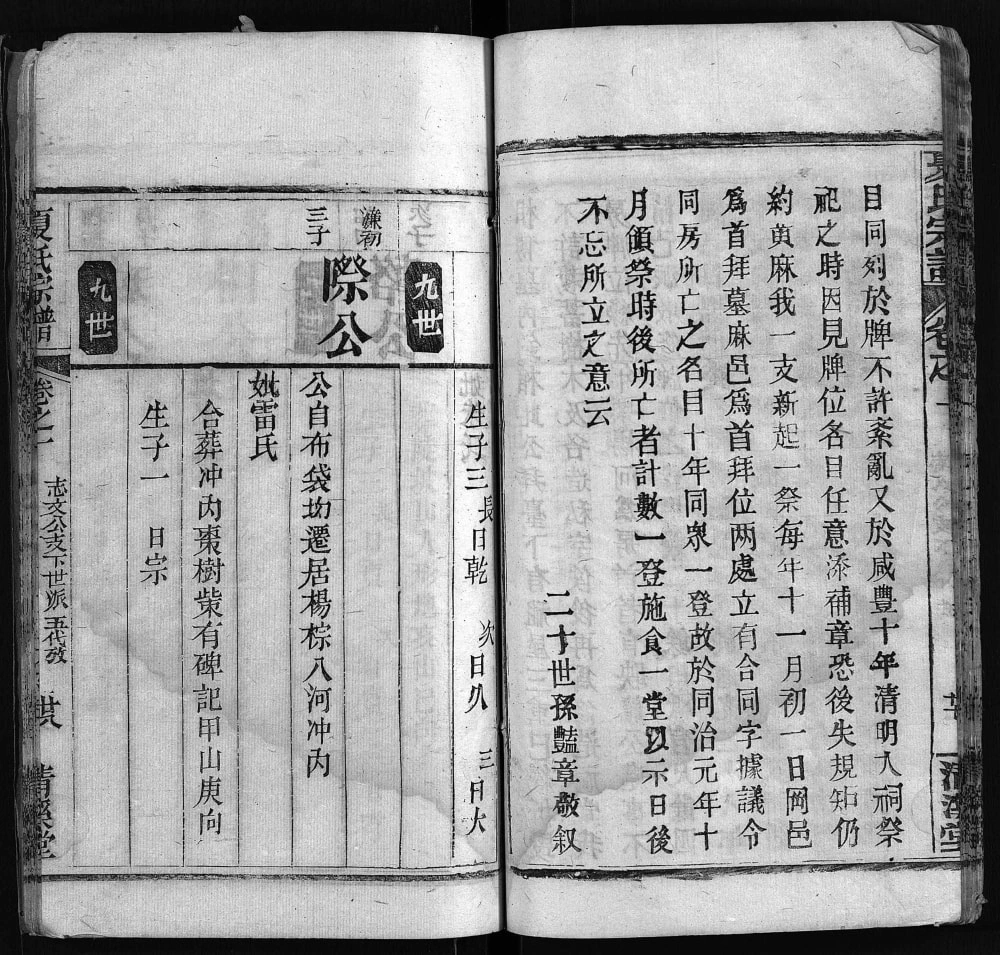 夏氏宗譜
卷之一
清溪堂
目同列於牌不許紊亂又於咸豐十年清明入祠祭
祀之時因見牌位各目任意添補章恐後失規矩仍
約黄麻我一支新起一祭每年十一月初一日岡邑
爲首拜墓麻邑爲首拜位两處立有合同字據議令
同房所亡之名目十年同衆一登故於同治元年十
月領祭時後所亡者計數一登施食一堂以示日後
不忘所立之意云
二十世孫豔章敬叙
生子三 長曰乾 次曰久 三曰大
九世
濂初
三子
際公
公自布袋坳遷居楊棕八河冲内
妣雷氏
合葬冲内棗樹岽有碑記甲山庚向
九世
生子一 曰宗
夏氏宗譜
卷之一
志文公支下世派五代攷
廿八
清溪堂